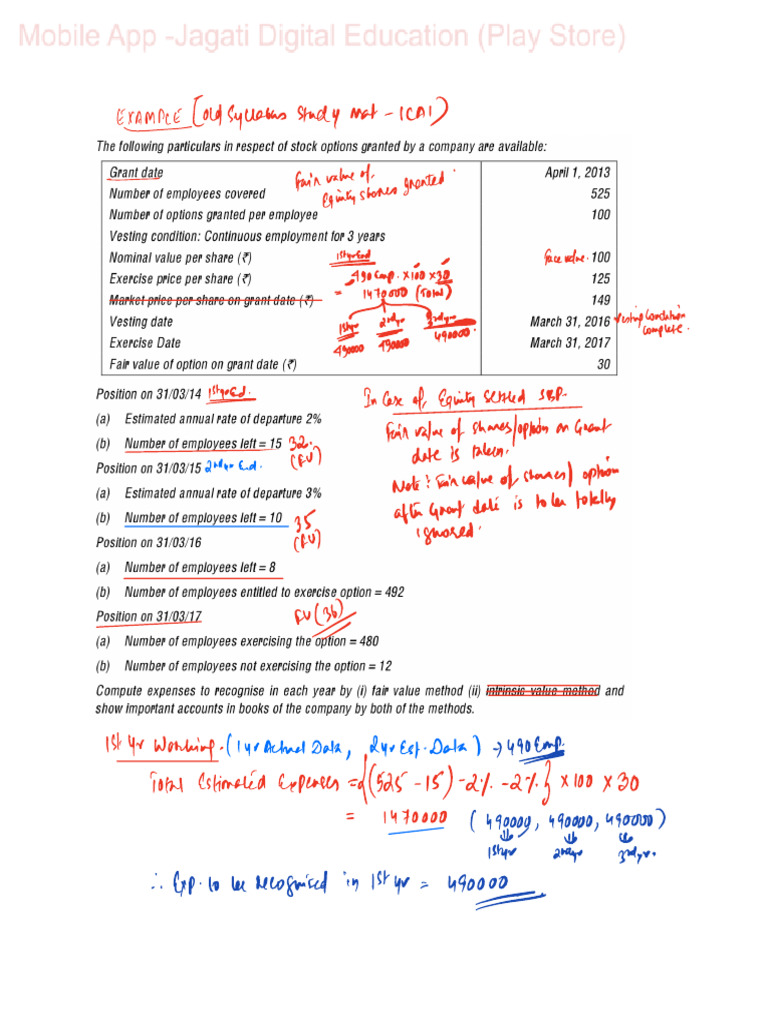 Mobile App -Jagati Digital Education (Play Store)
EXAMPLE [old Syllabus Study Mat - ICAI)
The following particulars in respect of stock options granted by a company are available:
Grant date April 1, 2013
Fair value of Equity shares granted.
Number of employees covered 525
Number of options granted per employee 100
Vesting condition: Continuous employment for 3 years
Nominal value per share (₹) Face value 100
1st yr End
Exercise price per share (₹) 125
490 Emp. × 100 × 30
= 1470000 (Total)
Market price per share on grant date (₹) 149
Vesting date March 31, 2016 Vesting Condition complete.
1st yr 2nd yr 3rd yr
490000 490000 490000
Exercise Date March 31, 2017
Fair value of option on grant date (₹) 30
Position on 31/03/14 1st yr Ed.
(a) Estimated annual rate of departure 2%
(b) Number of employees left = 15 32. (FV)
Position on 31/03/15 2nd yr End.
(a) Estimated annual rate of departure 3%
(b) Number of employees left = 10 35 (FV)
Position on 31/03/16
(a) Number of employees left = 8
(b) Number of employees entitled to exercise option = 492
Position on 31/03/17 FV (36)
(a) Number of employees exercising the option = 480
(b) Number of employees not exercising the option = 12
In Case of Equity Settled SBP.
Fair value of shares/option on Grant
date is taken.
Note: Fair value of shares/option
after Grant date is to be totally
ignored.
Compute expenses to recognise in each year by (i) fair value method (ii) intrinsic value method and
show important accounts in books of the company by both of the methods.
1st Yr Working. (1 yr Actual Data, 2 yr Est. Data) → 490 Emp.
Total Estimated Expenses = {(525 - 15) - 2% - 2%} × 100 × 30
= 1470000 (490000, 490000, 490000)
1st yr 2nd yr 3rd yr.
∴ Exp. to be recognised in 1st yr = 490000